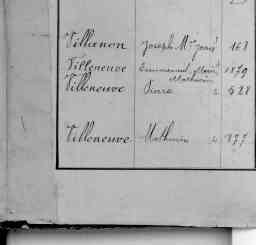 Villanon Joseph Mie José 168
Villeneuve Emmanuel Marie Mathurin 1879
Villeneuve Pierre 2 528
Villeneuve Mathurin 2 737